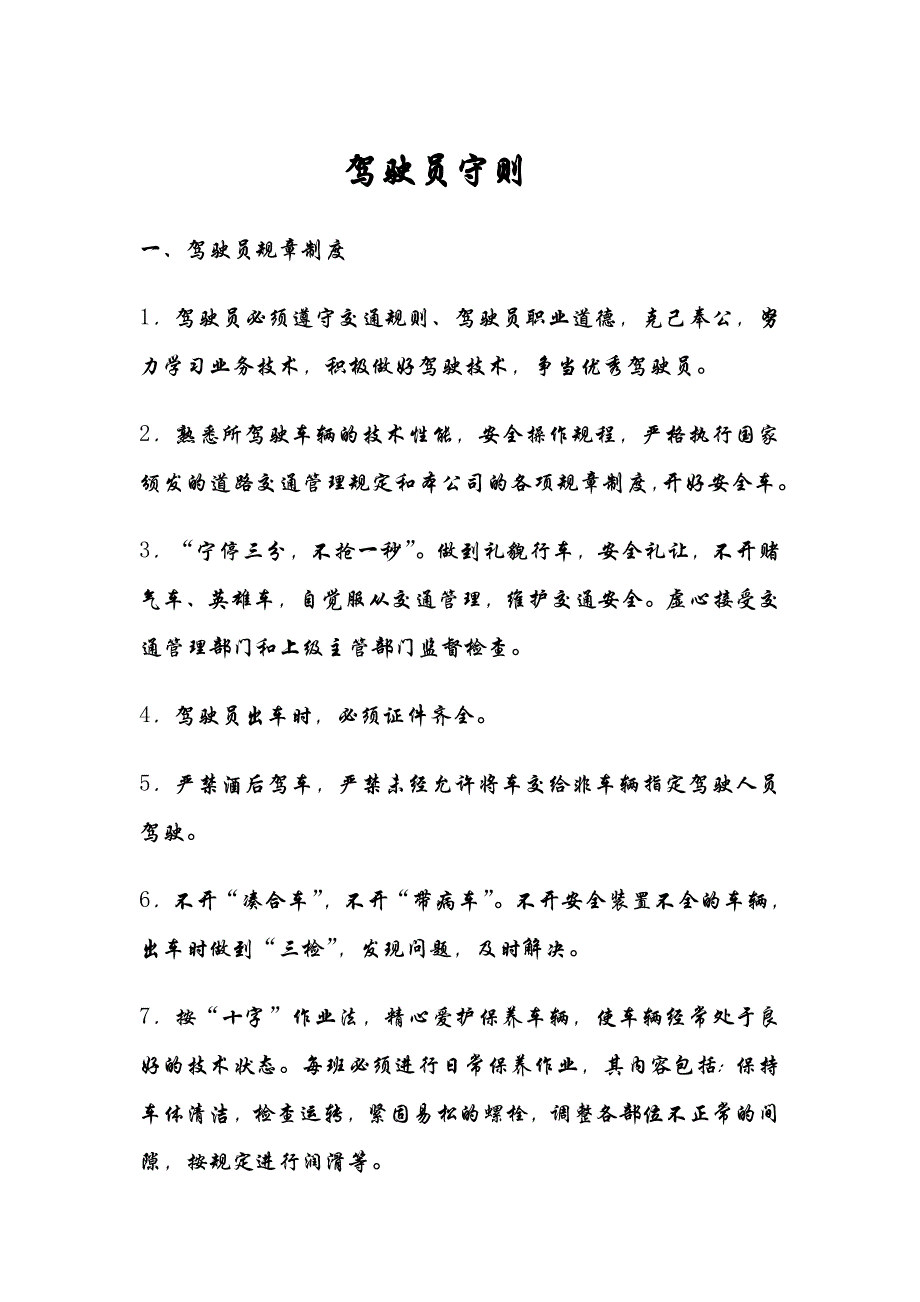 驾驶员守则
一、驾驶员规章制度
1．驾驶员必须遵守交通规则、驾驶员职业道德，克己奉公，努
力学习业务技术，积极做好驾驶技术，争当优秀驾驶员。
2．熟悉所驾驶车辆的技术性能，安全操作规程，严格执行国家
颁发的道路交通管理规定和本公司的各项规章制度，开好安全车。
3．“宁停三分，不抢一秒”。做到礼貌行车，安全礼让，不开赌
气车、英雄车，自觉服从交通管理，维护交通安全。虚心接受交
通管理部门和上级主管部门监督检查。
4．驾驶员出车时，必须证件齐全。
5．严禁酒后驾车，严禁未经允许将车交给非车辆指定驾驶人员
驾驶。
6．不开“凑合车”，不开“带病车”。不开安全装置不全的车辆，
出车时做到“三检”，发现问题，及时解决。
7．按“十字”作业法，精心爱护保养车辆，使车辆经常处于良
好的技术状态。每班必须进行日常保养作业，其内容包括：保持
车体清洁，检查运转，紧固易松的螺栓，调整各部位不正常的间
隙，按规定进行润滑等。